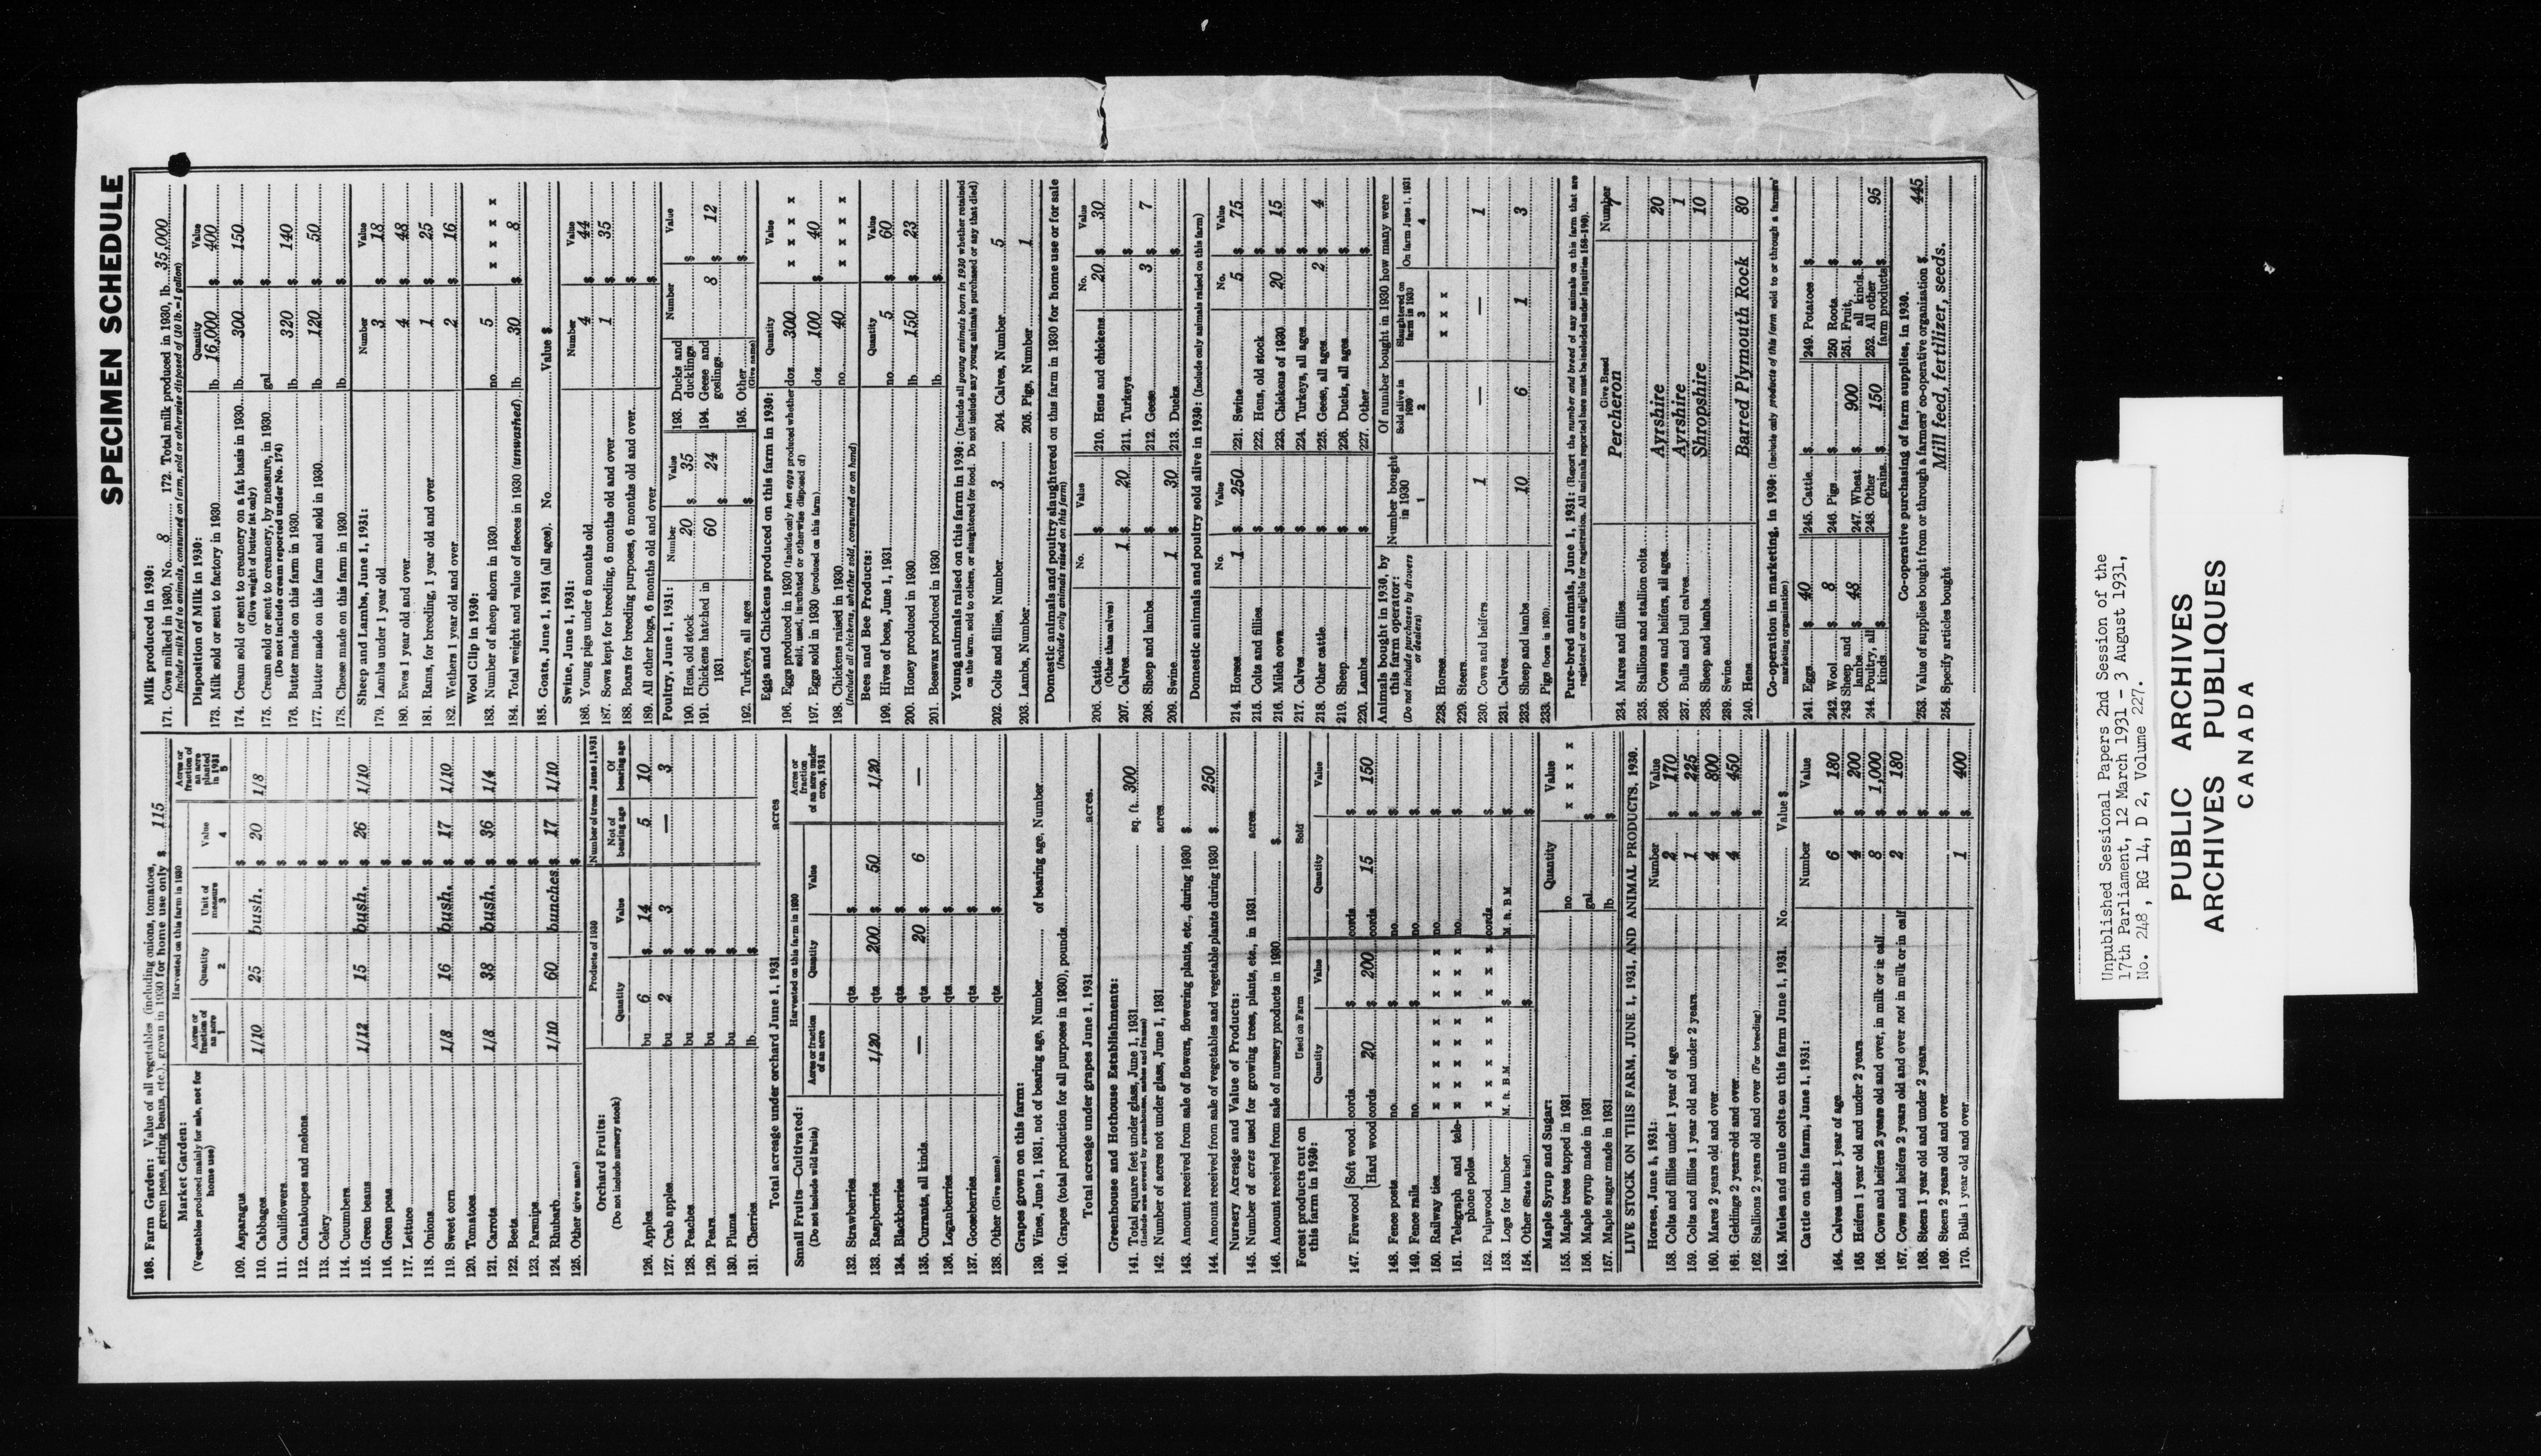 SPECIMEN SCHEDULE
108. Farm Garden: Value of all vegetables (including onions, tomatoes, green peas, string beans, etc.), grown in 1930 for home use only $ 115
Market Garden:
(Vegetables produced mainly for sale, not for home use)
Harvested on this farm in 1930
Acres or fraction of an acre 1
Quantity 2
Unit of measure 3
Value 4
Acres or fraction of an acre planted in 1931 5
109. Asparagus $
110. Cabbages 1/10 25 bush. $ 20 1/8
111. Cauliflowers $
112. Cantaloupes and melons $
113. Celery $
114. Cucumbers $
115. Green beans 1/12 15 bush. $ 26 1/10
116. Green peas $
117. Lettuce $
118. Onions $
119. Sweet corn 1/8 16 bush. $ 17 1/10
120. Tomatoes $
121. Carrots 1/8 38 bush. $ 36 1/4
122. Beets $
123. Parsnips $
124. Rhubarb 1/10 60 bunches $ 17 1/10
125. Other (give name) $
Orchard Fruits:
(Do not include nursery stock)
Products of 1930
Number of trees June 1, 1931
Quantity
Value
Not of bearing age
Of bearing age
126. Apples bu 6 $ 14 5 10
127. Crab apples bu 2 $ 3 — 3
128. Peaches bu $
129. Pears bu $
130. Plums bu $
131. Cherries lb. $
Total acreage under orchard June 1, 1931 acres
Small Fruits—Cultivated:
(Do not include wild fruits)
Harvested on this farm in 1930
Acres or fraction of an acre
Quantity
Value
Acres or fraction of an acre under crop, 1931
132. Strawberries qts $
133. Raspberries 1/20 qts 200 $ 50 1/20
134. Blackberries qts $
135. Currants, all kinds — qts 20 $ 6 —
136. Loganberries qts $
137. Gooseberries qts $
138. Other (Give name) qts $
Grapes grown on this farm:
139. Vines, June 1, 1931, not of bearing age, Number of bearing age, Number
140. Grapes (total production for all purposes in 1930), pounds
Total acreage under grapes June 1, 1931 acres.
Greenhouse and Hothouse Establishments:
141. Total square feet under glass, June 1, 1931 sq. ft. 300
(Include area covered by greenhouses, sashes and frames)
142. Number of acres not under glass, June 1, 1931 acres
143. Amount received from sale of flowers, flowering plants, etc., during 1930 $
144. Amount received from sale of vegetables and vegetable plants during 1930 $ 250
Nursery Acreage and Value of Products:
145. Number of acres used for growing trees, plants, etc., in 1931 acres
146. Amount received from sale of nursery products in 1930 $
Forest products cut on this farm in 1930:
Used on Farm
Sold
Quantity
Value
Quantity
Value
147. Firewood {Soft wood cords $ cords $
{Hard wood cords 20 $ 200 cords 15 $ 150
148. Fence posts no. $ no. $
149. Fence rails no. $ no. $
150. Railway ties x x x x x x x no. $
151. Telegraph and telephone poles x x x x x x x no. $
152. Pulpwood x x x x x x x cords $
153. Logs for lumber M. ft. B.M. $ M. ft. B.M. $
154. Other (State kind) $ $
Maple Syrup and Sugar:
Quantity
Value
155. Maple trees tapped in 1931 no. x x x x
156. Maple syrup made in 1931 gal. $
157. Maple sugar made in 1931 lb. $
LIVE STOCK ON THIS FARM, JUNE 1, 1931, AND ANIMAL PRODUCTS, 1930.
Horses, June 1, 1931:
Number
Value
158. Colts and fillies under 1 year of age 2 $ 170
159. Colts and fillies 1 year old and under 2 years 1 $ 225
160. Mares 2 years old and over 4 $ 800
161. Geldings 2 years old and over 4 $ 450
162. Stallions 2 years old and over (For breeding) $
163. Mules and mule colts on this farm June 1, 1931. No. Value $
Cattle on this farm, June 1, 1931:
Number
Value
164. Calves under 1 year of age 6 $ 180
165. Heifers 1 year old and under 2 years 4 $ 200
166. Cows and heifers 2 years old and over, in milk or in calf 8 $ 1,000
167. Cows and heifers 2 years old and over not in milk or in calf 2 $ 180
168. Steers 1 year old and under 2 years $
169. Steers 2 years old and over $
170. Bulls 1 year old and over 1 $ 400
Milk produced in 1930:
171. Cows milked in 1930, No. 8 172. Total milk produced in 1930, lb. 35,000
Include milk fed to animals, consumed on farm, sold or otherwise disposed of (10 lb.=1 gallon)
Disposition of Milk in 1930:
Quantity
Value
173. Milk sold or sent to factory in 1930 lb. 16,000 $ 400
174. Cream sold or sent to creamery on a fat basis in 1930 lb. 300 $ 150
(Give weight of butter fat only)
175. Cream sold or sent to creamery, by measure, in 1930 gal. $
(Do not include cream reported under No. 174)
176. Butter made on this farm in 1930 lb. 320 $ 140
177. Butter made on this farm and sold in 1930 lb. 120 $ 50
178. Cheese made on this farm in 1930 lb. $
Sheep and Lambs, June 1, 1931:
Number
Value
179. Lambs under 1 year old 3 $ 18
180. Ewes 1 year old and over 4 $ 48
181. Rams, for breeding, 1 year old and over 1 $ 25
182. Wethers 1 year old and over 2 $ 16
Wool Clip in 1930:
183. Number of sheep shorn in 1930 no. 5 x x x x
184. Total weight and value of fleeces in 1930 (unwashed) lb. 30 $ 8
185. Goats, June 1, 1931 (all ages). No. Value $
Swine, June 1, 1931:
Number
Value
186. Young pigs under 6 months old 4 $ 44
187. Sows kept for breeding, 6 months old and over 1 $ 35
188. Boars for breeding purposes, 6 months old and over $
189. All other hogs, 6 months old and over $
Poultry, June 1, 1931:
Number
Value
Number
Value
190. Hens, old stock 20 $ 35
191. Chickens hatched in 1931 60 $ 24
192. Turkeys, all ages $
193. Ducks and ducklings $
194. Geese and goslings 8 $ 12
195. Other (Give name) $
Eggs and Chickens produced on this farm in 1930:
Quantity
Value
196. Eggs produced in 1930 (Include only hen eggs produced whether sold, used, incubated or otherwise disposed of) doz. 300 x x x x
197. Eggs sold in 1930 (produced on this farm) doz. 100 $ 40
198. Chickens raised in 1930 no. 40 x x x x
(Include all chickens, whether sold, consumed or on hand)
Bees and Bee Products:
Quantity
Value
199. Hives of bees, June 1, 1931 no. 5 $ 60
200. Honey produced in 1930 lb. 150 $ 23
201. Beeswax produced in 1930 lb. $
Young animals raised on this farm in 1930: (Include all young animals born in 1930 whether retained on the farm, sold to others, or slaughtered for food. Do not include any young animals purchased or any that died)
202. Colts and fillies, Number 3 204. Calves, Number 5
203. Lambs, Number 205. Pigs, Number 1
Domestic animals and poultry slaughtered on this farm in 1930 for home use or for sale
(Include only animals raised on this farm)
No.
Value
No.
Value
206. Cattle $ 210. Hens and chickens 20 $ 30
(Other than calves)
207. Calves 1 $ 20 211. Turkeys $
208. Sheep and lambs $ 212. Geese 3 $ 7
209. Swine 1 $ 30 213. Ducks $
Domestic animals and poultry sold alive in 1930: (Include only animals raised on this farm)
No.
Value
No.
Value
214. Horses 1 $ 250 221. Swine 5 $ 75
215. Colts and fillies $ 222. Hens, old stock $
216. Milch cows $ 223. Chickens of 1930 20 $ 15
217. Calves $ 224. Turkeys, all ages $
218. Other cattle $ 225. Geese, all ages 2 $ 4
219. Sheep $ 226. Ducks, all ages $
220. Lambs $ 227. Other $
Animals bought in 1930, by this farm operator:
(Do not include purchases by drovers or dealers)
Number bought in 1930 1
Of number bought in 1930 how many were
Sold alive in 1930 2
Slaughtered on farm in 1930 3
On farm June 1, 1931 4
228. Horses x x x
229. Steers
230. Cows and heifers 1 — — 1
231. Calves
232. Sheep and lambs 10 6 1 3
233. Pigs (born in 1930)
Pure-bred animals, June 1, 1931: (Report the number and breed of any animals on this farm that are registered or are eligible for registration. All animals reported here must be included under Inquiries 158-190).
Give Breed
Number
234. Mares and fillies Percheron 7
235. Stallions and stallion colts
236. Cows and heifers, all ages Ayrshire 20
237. Bulls and bull calves Ayrshire 1
238. Sheep and lambs Shropshire 10
239. Swine
240. Hens Barred Plymouth Rock 80
Co-operation in marketing, in 1930: (Include only products of this farm sold to or through a farmers' marketing organization)
241. Eggs $ 40 245. Cattle $ 249. Potatoes $
242. Wool $ 8 246. Pigs $ 250 Roots $
243 Sheep and lambs $ 48 247. Wheat $ 900 251. Fruit, all kinds $
244. Poultry, all kinds $ 248. Other grains $ 150 252. All other farm products $ 95
Co-operative purchasing of farm supplies, in 1930.
253. Value of supplies bought from or through a farmers' co-operative organization $ 445
254. Specify articles bought Mill feed, fertilizer, seeds.
Unpublished Sessional Papers 2nd Session of the
17th Parliament, 12 March 1931 - 3 August 1931,
No. 248 , RG 14, D 2, Volume 227.
PUBLIC ARCHIVES
ARCHIVES PUBLIQUES
CANADA